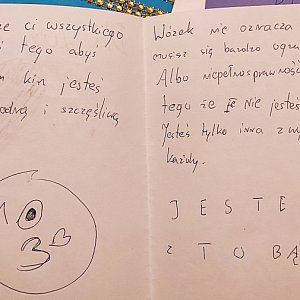 ze ci wszystkiego
i tego abyś
kim jesteś
odną i szczęśliwą
Wózek nie oznacza
musisz się bardzo ogra
Albo niepełnosprawność
tego że nie jesteś
Jesteś tylko inna z wy
każdy.
J E S T E
z T O B Ą